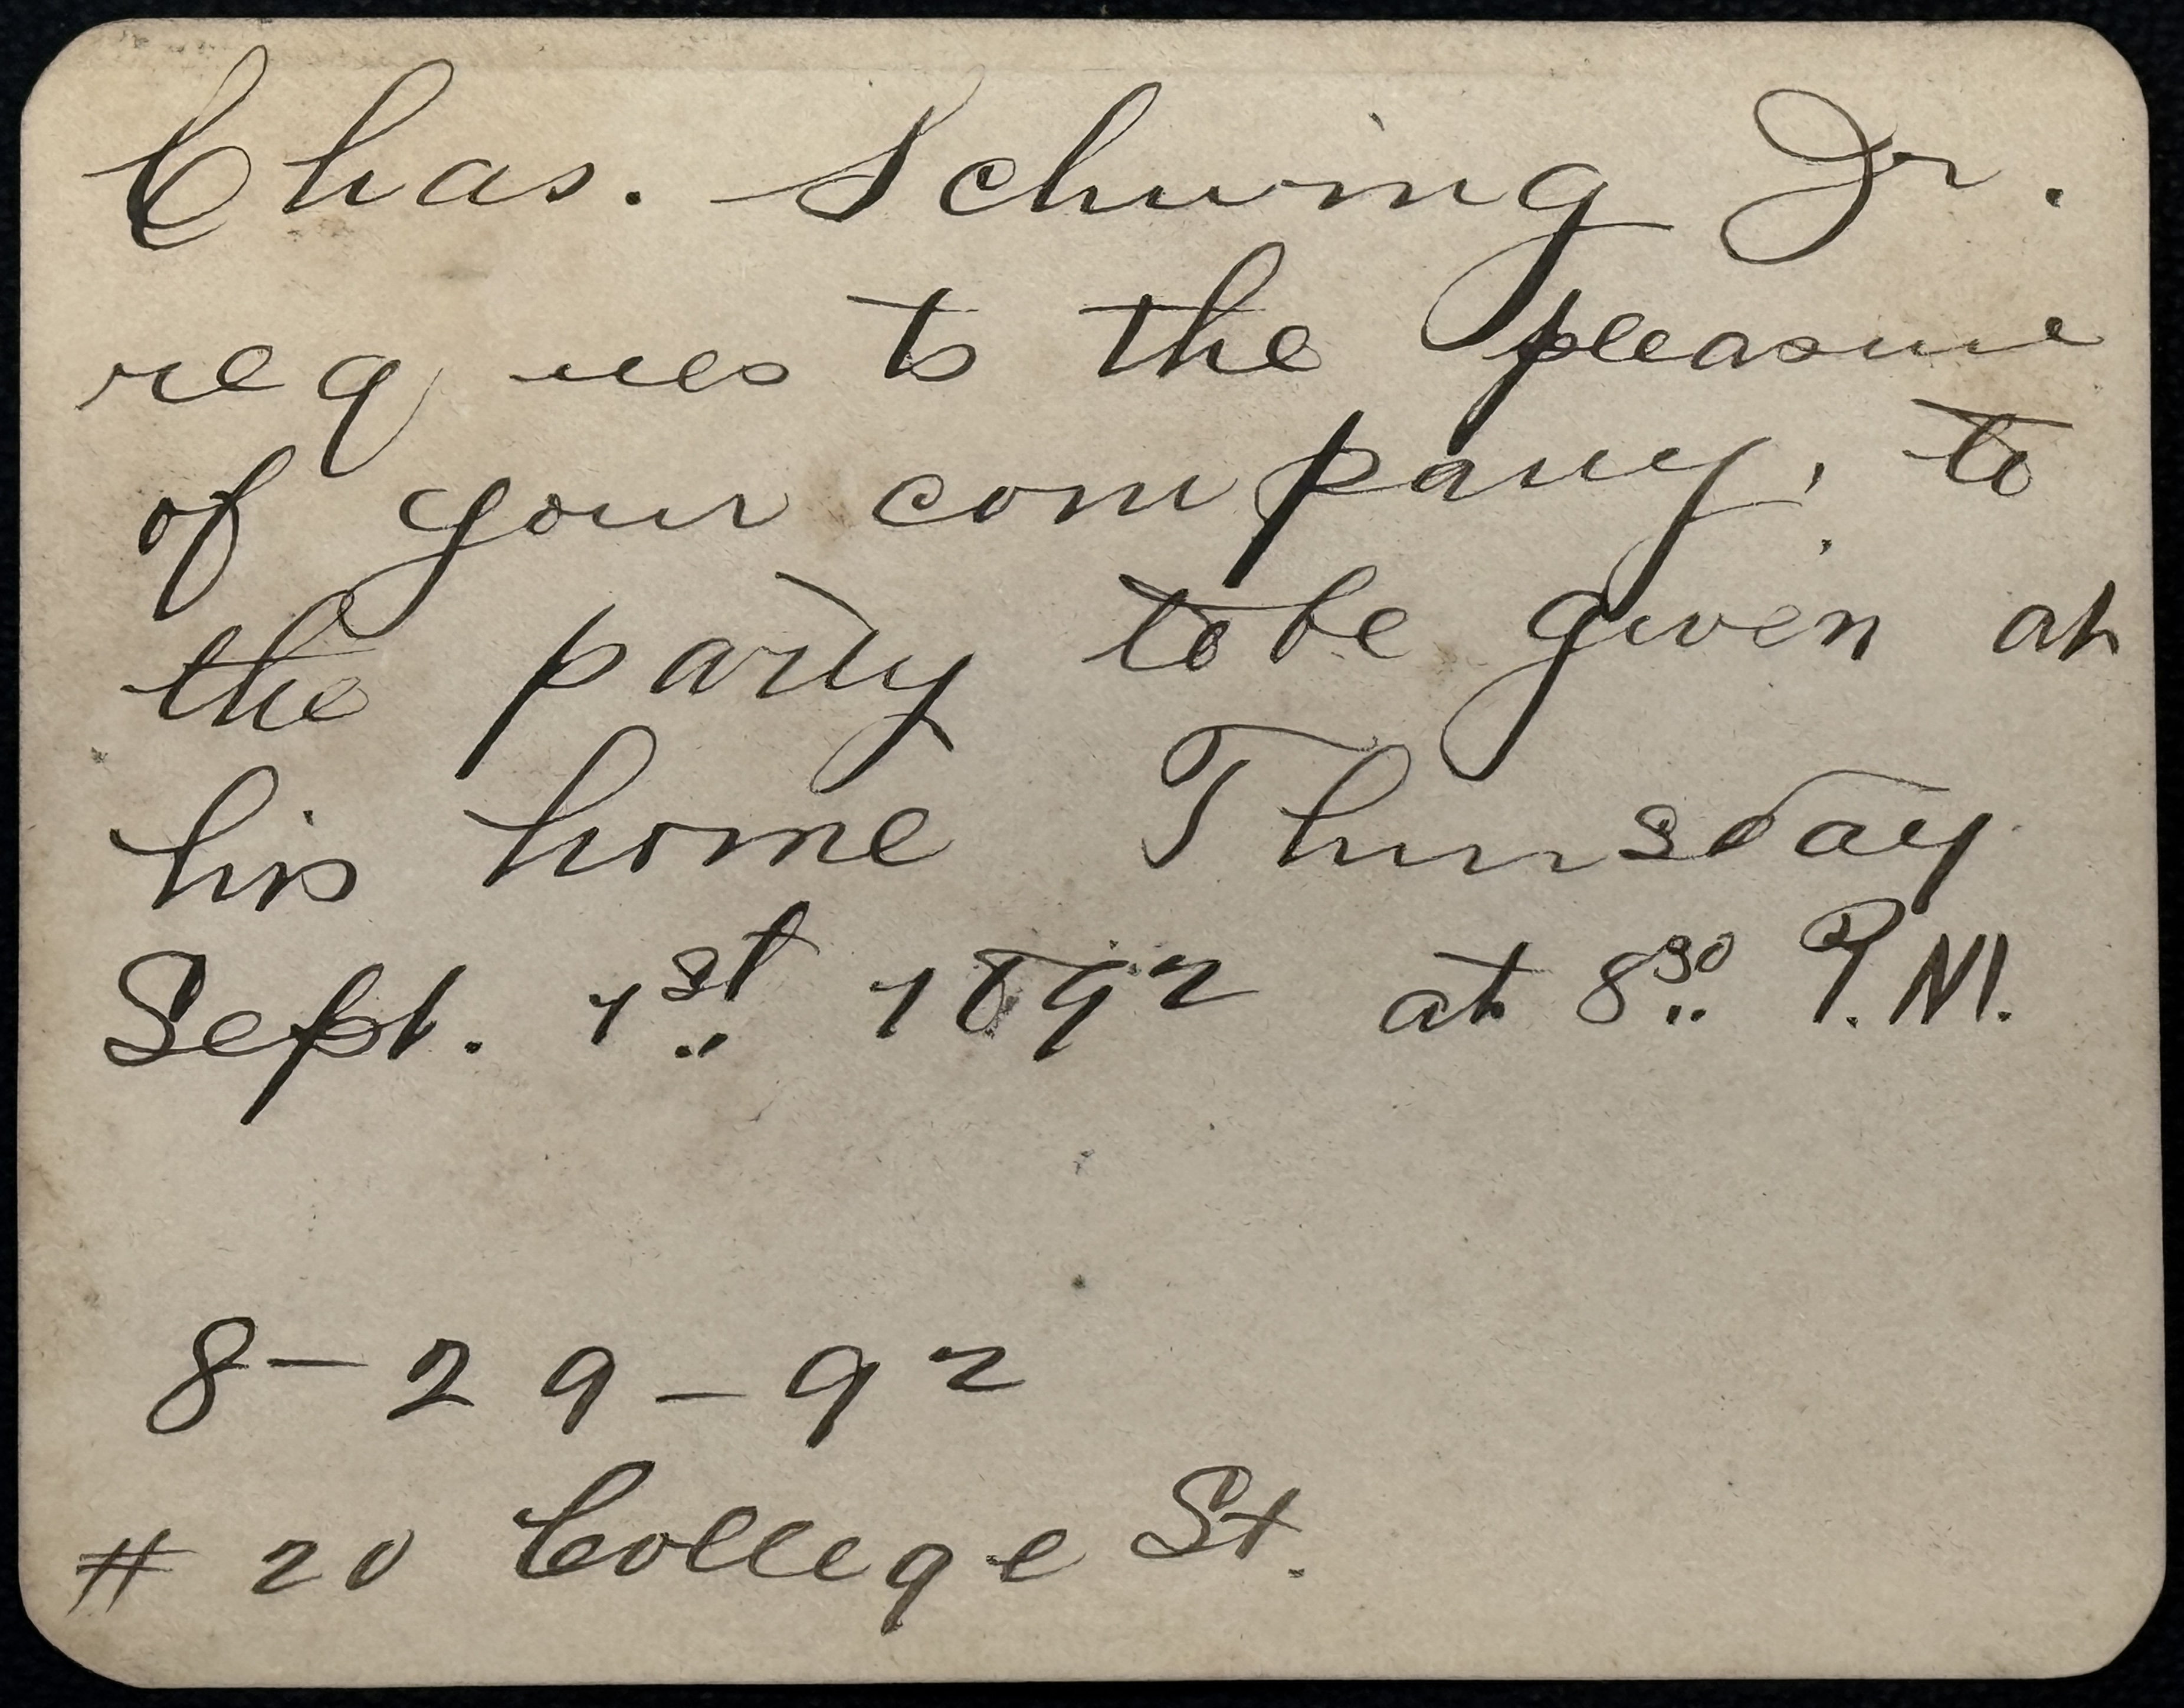 Chas. Schwing Jr.
requests the pleasure
of your company, to
the party to be given at
his home Thursday
Sept. 1st 1892 at 8³⁰ P.M.
8-29-92
# 20 College St.